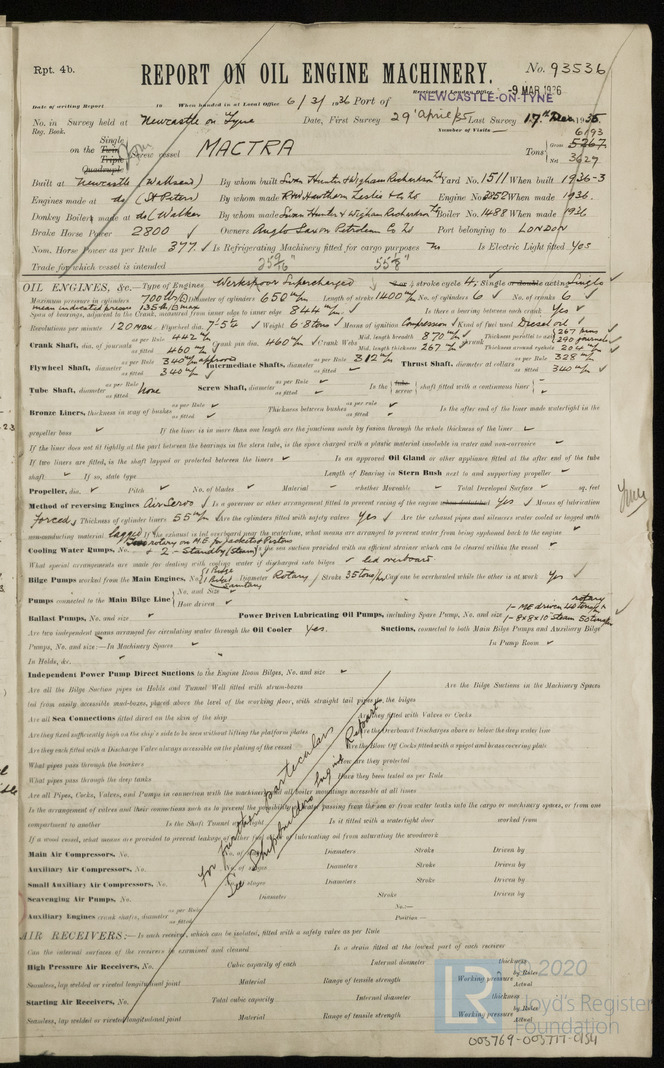 Rpt. 4b.
REPORT ON OIL ENGINE MACHINERY.
No. 93536
Received at London Office -9 MAR 1936
Date of writing Report 19 When handed in at Local Office 6/3/1936 Port of NEWCASTLE-ON-TYNE
No. in Survey held at Newcastle on Tyne Date, First Survey 29 April /35 Last Survey 17th
Reg. Book. Number of Visits
on the Single Twin Triple Quadruple Screw vessel MACTRA Tons Gross 6193 5267 Net 3627
Built at Newcastle (Wallsend) By whom built Swan Hunter & Wigham Richardson Ltd Yard No. 1511 When built 1936-3
Engines made at do (St Peters) By whom made R W Hawthorn Leslie & Co Ltd Engine No. 3052 When made 1936.
Donkey Boilers made at do (Walker By whom made Swan Hunter & Wigham Richardson Ltd Boiler No. 1488 When made 1936
Brake Horse Power 2800 Owners Anglo Saxon Petroleum Co Ld Port belonging to LONDON
Nom. Horse Power as per Rule 377 Is Refrigerating Machinery fitted for cargo purposes no Is Electric Light fitted Yes
Trade for which vessel is intended 25 9/16" 55 1/8"
OIL ENGINES, &c.—Type of Engines Werkspoor Supercharged 2 or 4 stroke cycle 4 Single or double acting Single
Maximum pressure in cylinders 700 lb/□" Diameter of cylinders 650 m/m Length of stroke 1400 m/m No. of cylinders 6 No. of cranks 6
mean indicated pressure 135 lb/□ max
Span of bearings, adjacent to the Crank, measured from inner edge to inner edge 844 m/m Is there a bearing between each crank Yes
Revolutions per minute 120 max. Flywheel dia. 7'-5" Weight 6.8 tons Means of ignition Compression Kind of fuel used Diesel oil
Crank Shaft, dia. of journals as per Rule 442 m/m as fitted 460 m/m Crank pin dia. 460 m/m Crank Webs Mid. length breadth 870 m/m Mid. length thickness 267 m/m Thickness parallel to axis 267 pins 290 journals Thickness around eyehole 204 m/m
Flywheel Shaft, diameter as per Rule 340 m/m approved as fitted 340 m/m Intermediate Shafts, diameter as per Rule 312 m/m as fitted Thrust Shaft, diameter at collars as per Rule 328 m/m as fitted 340 m/m
Tube Shaft, diameter as per Rule as fitted None Screw Shaft, diameter as per Rule as fitted Is the tube screw shaft fitted with a continuous liner
Bronze Liners, thickness in way of bushes as per Rule as fitted Thickness between bushes as per rule as fitted Is the after end of the liner made watertight in the
propeller boss If the liner is in more than one length are the junctions made by fusion through the whole thickness of the liner
If the liner does not fit tightly at the part between the bearings in the stern tube, is the space charged with a plastic material insoluble in water and non-corrosive
If two liners are fitted, is the shaft lapped or protected between the liners Is an approved Oil Gland or other appliance fitted at the after end of the tube
shaft If so, state type Length of Bearing in Stern Bush next to and supporting propeller
Propeller, dia. Pitch No. of blades Material whether Moveable Total Developed Surface sq. feet
Method of reversing Engines Air Servo Is a governor or other arrangement fitted to prevent racing of the engine when declutched Yes Means of lubrication
forced Thickness of cylinder liners 55 m/m Are the cylinders fitted with safety valves Yes Are the exhaust pipes and silencers water cooled or lagged with
non-conducting material lagged If the exhaust is led overboard near the waterline, what means are arranged to prevent water from being syphoned back to the engine
Cooling Water Pumps, No. rotary on M.E. for Jackets & Pistons + 2 - Standby (steam) Is the sea suction provided with an efficient strainer which can be cleared within the vessel
What special arrangements are made for dealing with cooling water if discharged into bilges led overboard
Bilge Pumps worked from the Main Engines, No. Diameter Rotary Stroke 35 tons/hr Can one be overhauled while the other is at work Yes
Pumps connected to the Main Bilge Line No. and Size How driven
Ballast Pumps, No. and size Power Driven Lubricating Oil Pumps, including Spare Pump, No. and size 1- ME driven rotary 1- 8x8x10 steam 50 ton/hr
Are two independent means arranged for circulating water through the Oil Cooler Yes. Suctions, connected to both Main Bilge Pumps and Auxiliary Bilge
Pumps, No. and size:—In Machinery Spaces In Pump Room
In Holds, &c.
Independent Power Pump Direct Suctions to the Engine Room Bilges, No. and size
Are all the Bilge Suction pipes in Holds and Tunnel Well fitted with strum-boxes Are the Bilge Suctions in the Machinery Spaces
led from easily accessible mud-boxes, placed above the level of the working floor, with straight tail pipes to the bilges
Are all Sea Connections fitted direct on the skin of the ship Are they fitted with Valves or Cocks
Are they fixed sufficiently high on the ship's side to be seen without lifting the platform plates Are the Overboard Discharges above or below the deep water line
Are they each fitted with a Discharge Valve always accessible on the plating of the vessel Are the Blow Off Cocks fitted with a spigot and brass covering plate
What pipes pass through the bunkers How are they protected
What pipes pass through the deep tanks Have they been tested as per Rule
Are all Pipes, Cocks, Valves, and Pumps in connection with the machinery and all boiler mountings accessible at all times
Is the arrangement of valves and their connections such as to prevent the possibility of water passing from the sea or from water tanks into the cargo or machinery spaces, or from one
compartment to another Is the Shaft Tunnel watertight Is it fitted with a watertight door worked from
If a wood vessel, what means are provided to prevent leakage of either fuel oil or lubricating oil from saturating the woodwork
for further particulars
See Shipbuilders Engine Report
Main Air Compressors, No. No. of stages Diameters Stroke Driven by
Auxiliary Air Compressors, No. No. of stages Diameters Stroke Driven by
Small Auxiliary Air Compressors, No. No. of stages Diameters Stroke Driven by
Scavenging Air Pumps, No. Diameter Stroke Driven by
Auxiliary Engines crank shafts, diameter as per Rule as fitted No. Position
AIR RECEIVERS:—Is each receiver, which can be isolated, fitted with a safety valve as per Rule
Can the internal surfaces of the receivers be examined and cleaned Is a drain fitted at the lowest part of each receiver
High Pressure Air Receivers, No. Cubic capacity of each Internal diameter thickness
Seamless, lap welded or riveted longitudinal joint Material Range of tensile strength Working pressure by Rules Actual
Starting Air Receivers, No. Total cubic capacity Internal diameter thickness
Seamless, lap welded or riveted longitudinal joint Material Range of tensile strength Working pressure by Rules Actual
LR
© 2020
Lloyd's Register
Foundation
003769-003777-0154